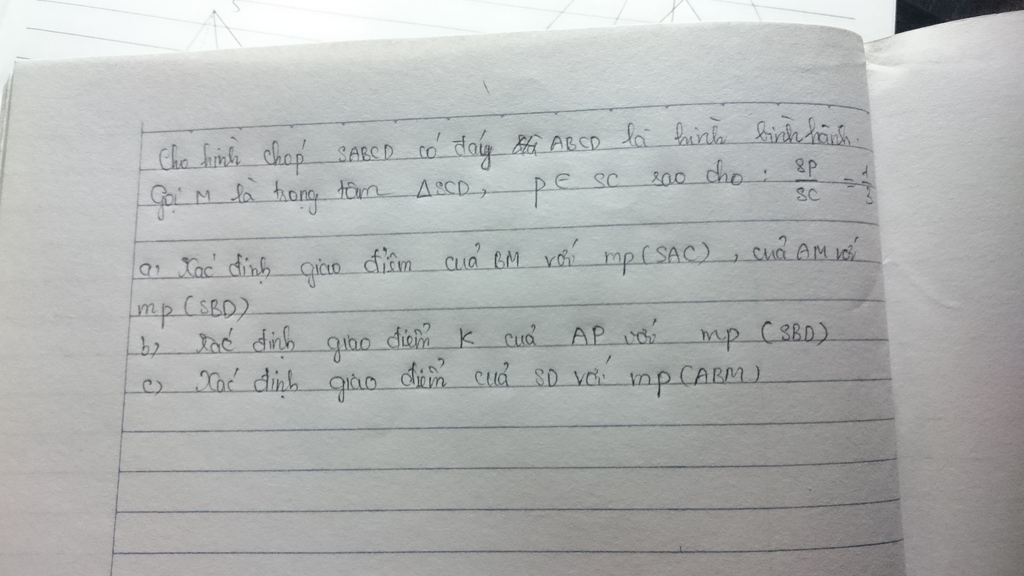 S
Cho hình chóp SABCD có đáy ABCD là hình bình hành.
Gọi M là trọng tâm ΔSCD, P ∈ SC sao cho : SP/SC = 1/3
a, Xác định giao điểm của BM với mp(SAC), của AM với
mp(SBD)
b, Xác định giao điểm K của AP với mp (SBD)
c, Xác định giao điểm của SD với mp(ABM)